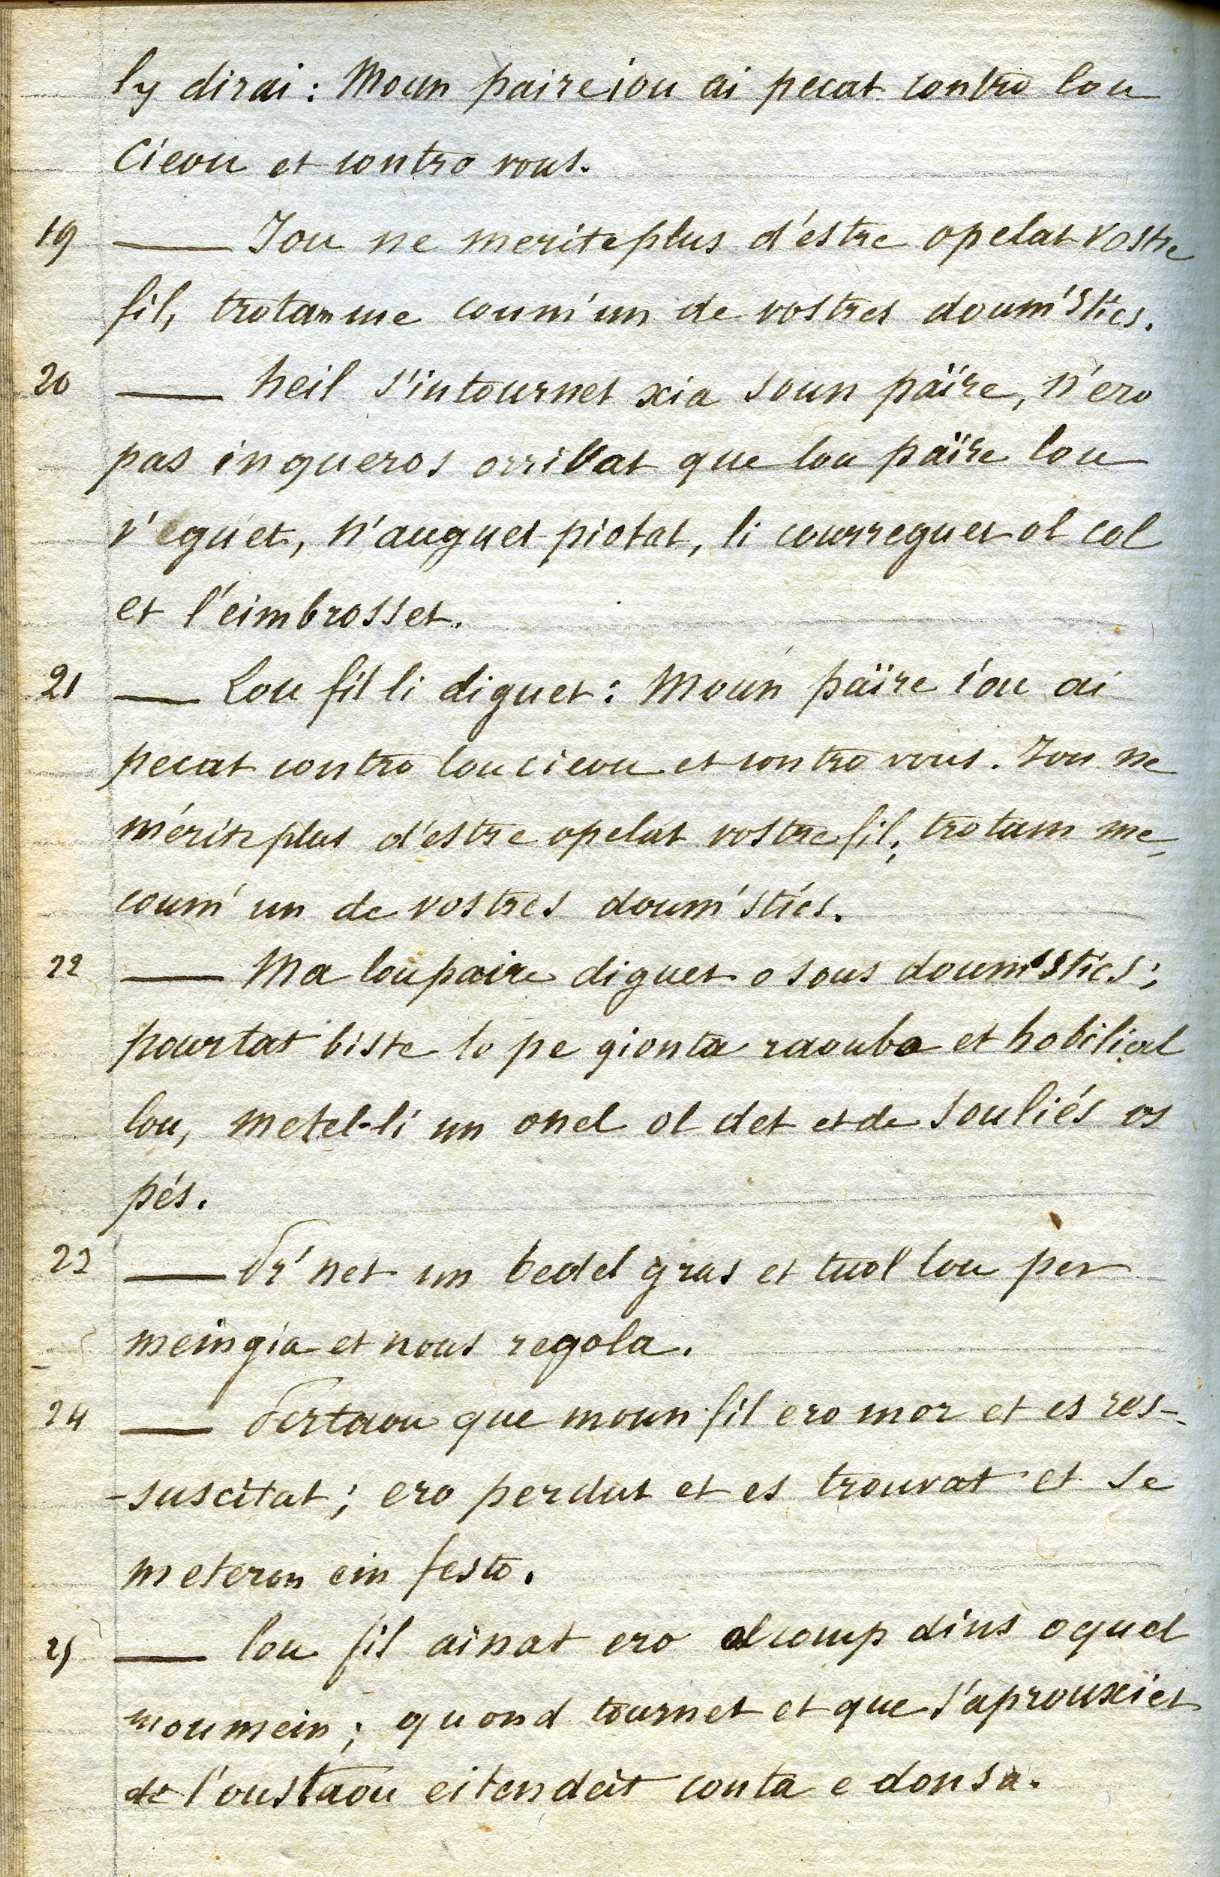 ly dirai : Moun paire iou ai pecat contro lou
Cieou et contro vous.
19 — Iou ne merite plus d'éstre opelat vostre
fil, trotam me coum'un de vostres doum'stics.
20 — heil s'intournet xia soun païre, n'ero
pas inqueros orribat que lou païre lou
v'eguet, n'auguet piotat, li courreguet ol col
et l'eimbrosset.
21 — Lou fil li diguet : Moun païre iou ai
pecat contro lou cieou et contro vous. Iou ne
mérite plus d'estre opelat vostre fil, trotam me,
coum' un de vostres doum'stics.
22 — Ma lou paire diguet o sous doum'stics ;
pourtat biste lo pe gionta raouba et hobiliat
lou, metet-li un onel ol det et de souliés os
pés.
23 — Pr'net un bedel gras et tuol lou per
meingia et nous regola.
24 — Pertaou que moun fil ero mor et es res-
-suscitat ; ero perdut et es trouvat et se
meteron ein festo.
25 — lou fil ainat ero ol comp dins oquel
moumein ; quond tournet et que s'aprouxiet
de l'oustaou eitendet conta e donsa.